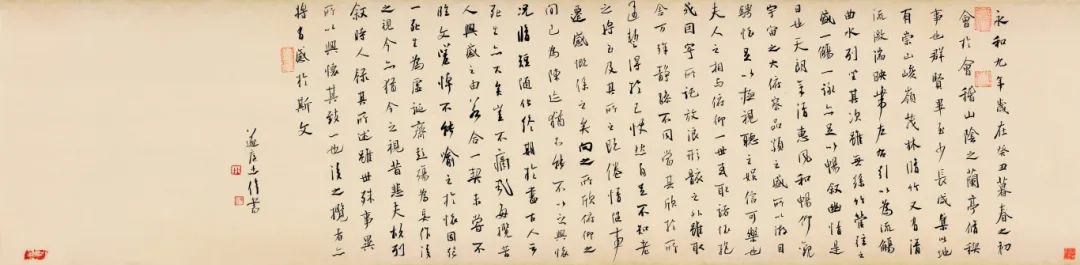 永和九年歲在癸丑暮春之初
會於會稽山陰之蘭亭脩禊
事也群賢畢至少長咸集此地
有崇山峻嶺茂林脩竹又有清
流激湍映帶左右引以為流觴
曲水列坐其次雖無絲竹管絃之
盛一觴一詠亦足以暢敘幽情是
日也天朗氣清惠風和暢仰觀
宇宙之大俯察品類之盛所以遊目
騁懷足以極視聽之娛信可樂也
夫人之相與俯仰一世或取諸懷抱
或因寄所託放浪形骸之外雖取
舍万殊靜躁不同當其欣於所
遇暫得於己快然自足不知老
之將至及其所之既倦情隨事
遷感慨係之矣向之所欣俯仰之
間已為陳迹猶不能不以之興懷
況脩短隨化終期於盡古人云
死生亦大矣豈不痛哉每攬昔
人興感之由若合一契未嘗不
臨文嗟悼不能喻之於懷固知
一死生為虛誕齊彭殤為妄作後
之視今亦猶今之視昔悲夫故列
敘時人錄其所述雖世殊事異
所以興懷其致一也後之攬者亦
將有感於斯文